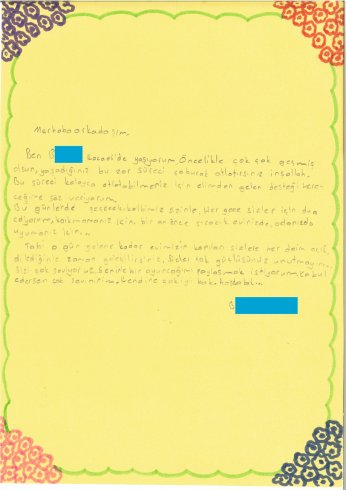 Merhaba arkadaşım,
Ben B Kocaeli'de yaşıyorum. Öncelikle çok çok geçmiş
olsun, yaşadığınız bu zor süreci çabucak atlatırsınız inşallah.
Bu süreci kolayca atlatabilmeniz için elimden gelen desteği vere-
ceğime söz veriyorum.
Bu günlerde kalbimiz sizinle. Her gece sizler için dua
ediyorum, korkmamanız için, bir an önce sıcak evinizde, odanızda
uyumanız için...
Tabi o gün gelene kadar evimizin kapıları sizlere her daim açık
dilediğiniz zaman gelebilirsiniz. Sizler çok güçlüsünüz unutmayın...
Sizi çok seviyoruz. Seninle bir oyuncağımı paylaşmak istiyorum, kabul
edersen çok sevinirim. Kendine çok iyi bak. Hoşçakal...
B